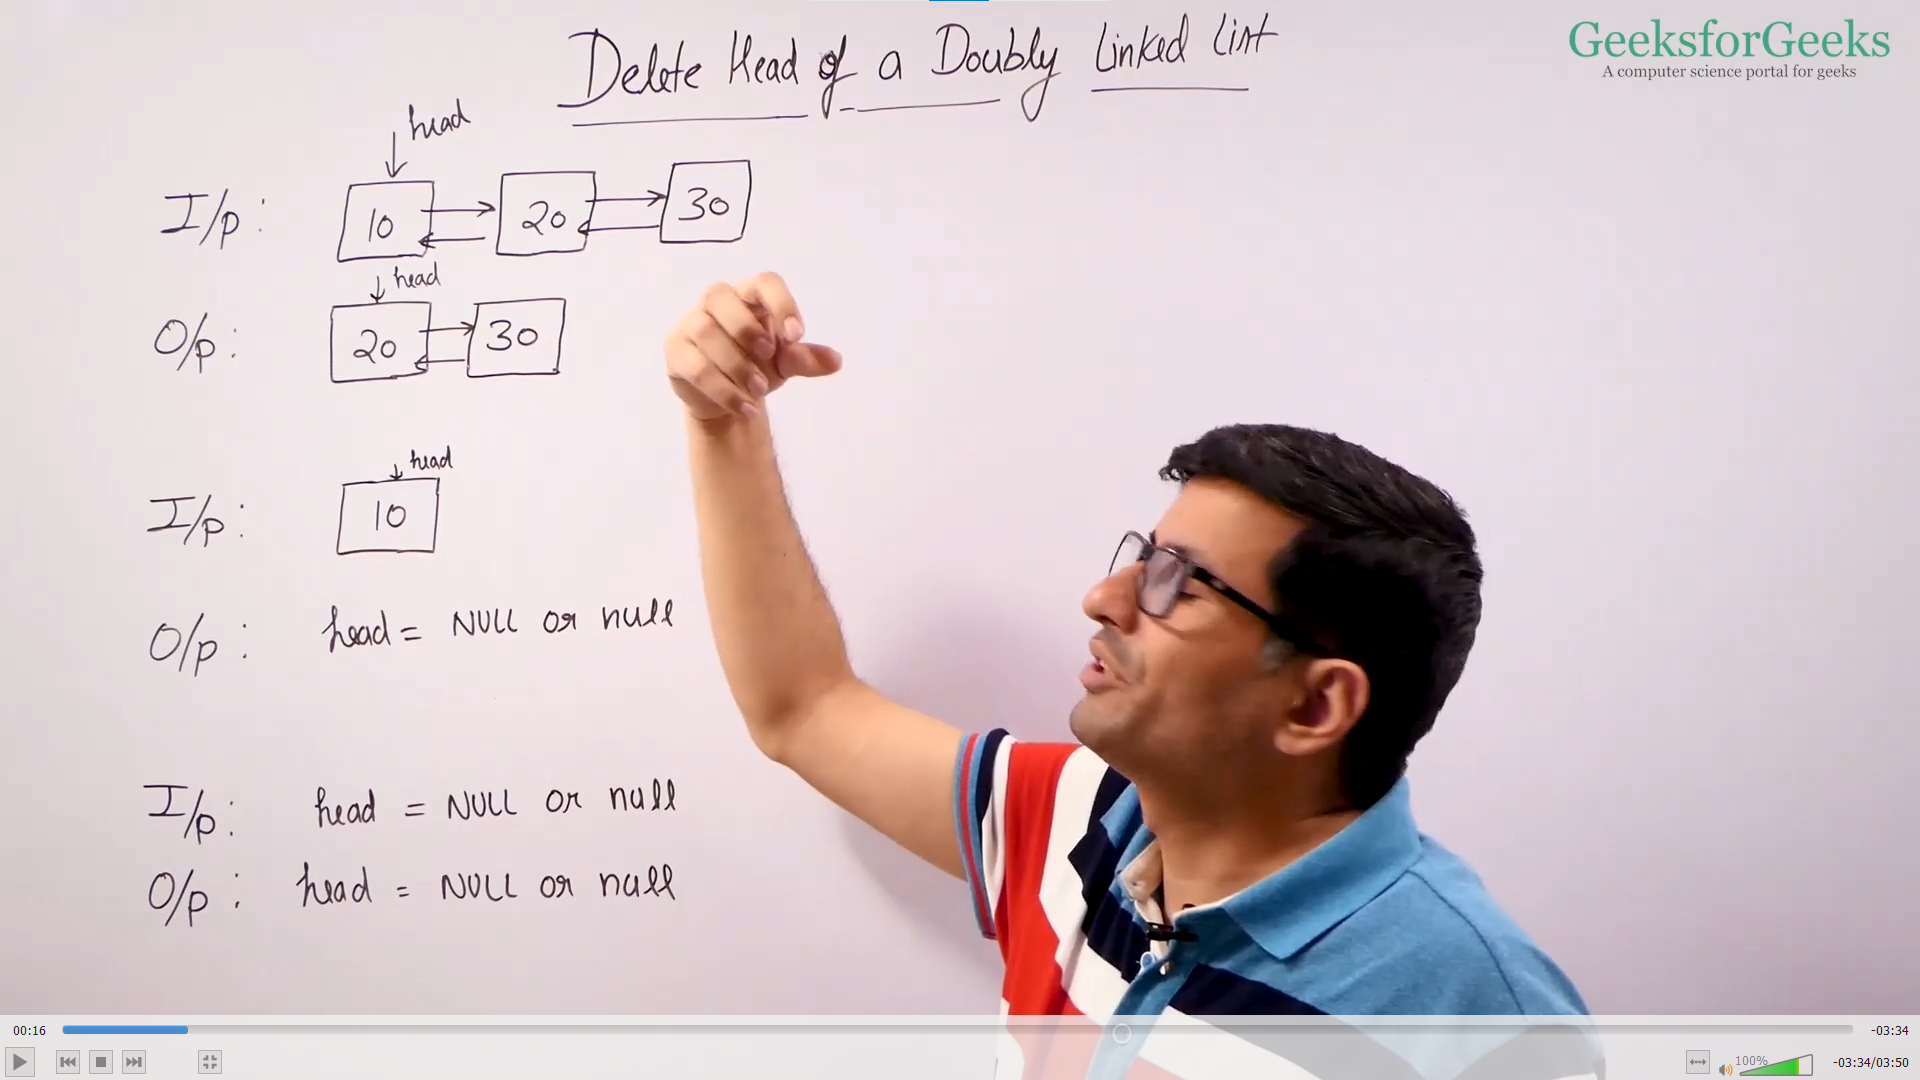 Delete Head of a Doubly Linked List
GeeksforGeeks
A computer science portal for geeks
head
I/p : 10 20 30
head
O/p : 20 30
head
I/p : 10
O/p : head = NULL or null
I/p : head = NULL or null
O/p : head = NULL or null
00:16
-03:34
100%
-03:34/03:50